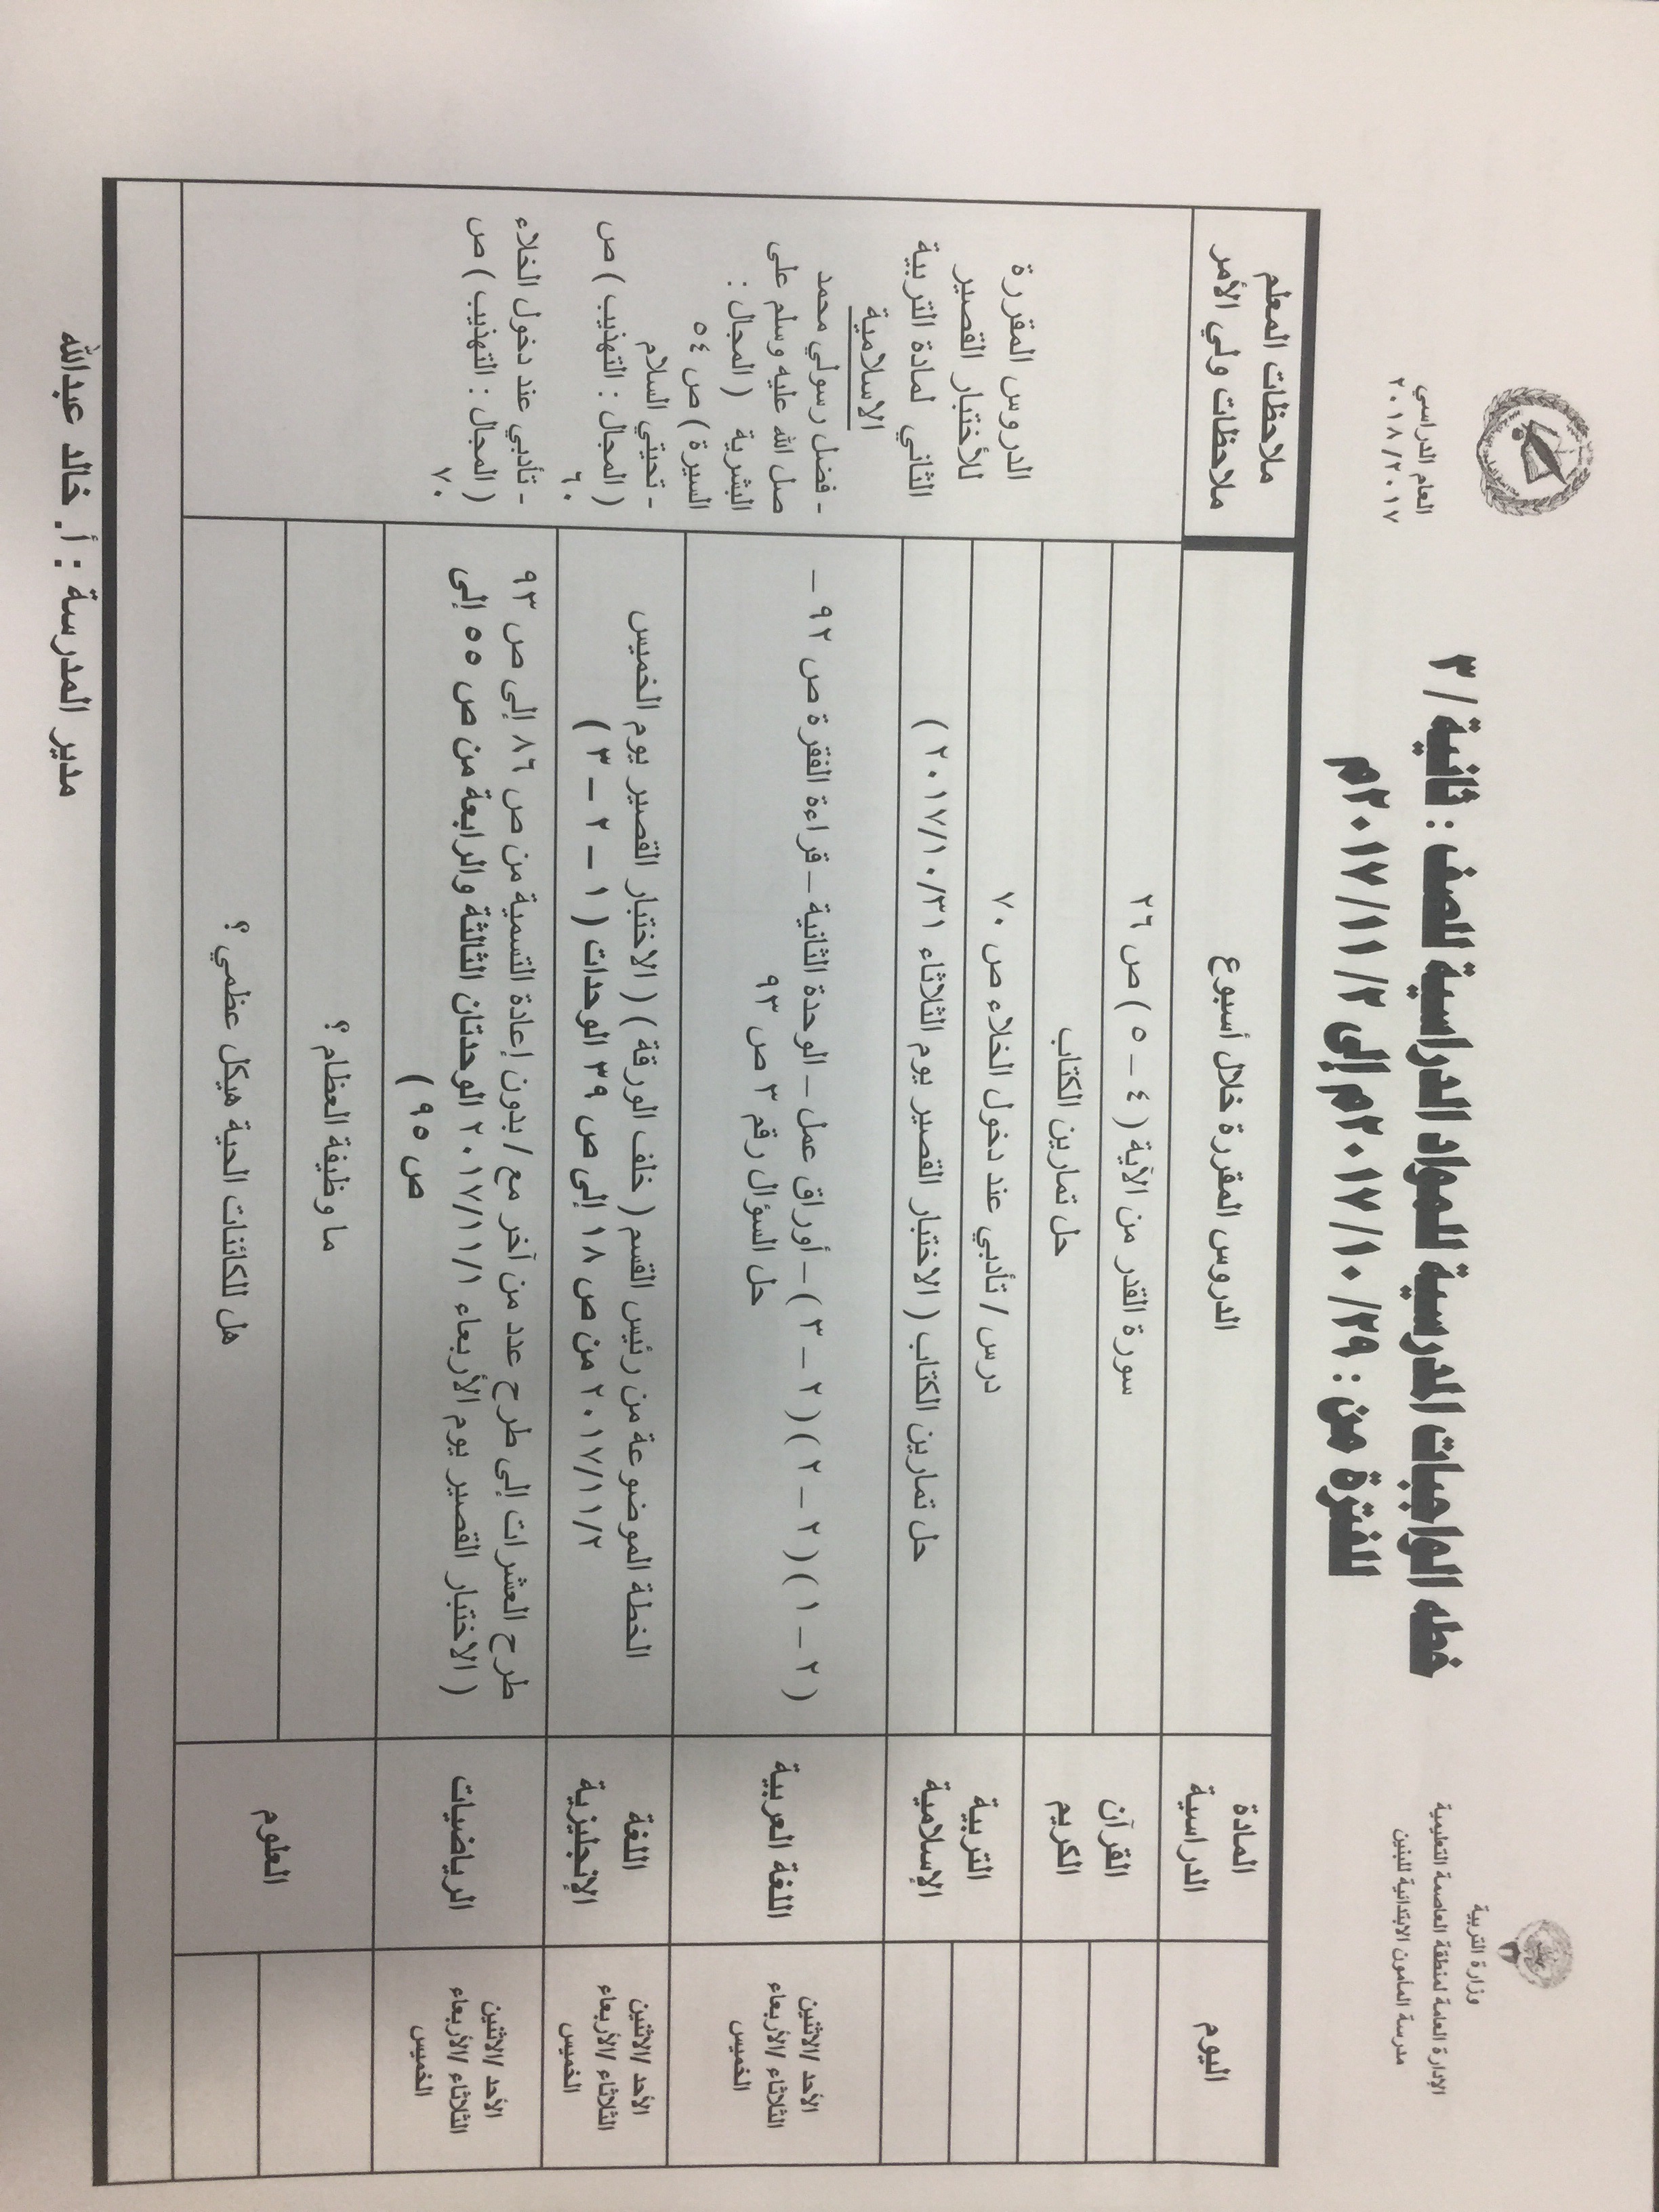 وزارة التربية
الإدارة العامة لمنطقة العاصمة التعليمية
مدرسة المأمون الابتدائية للبنين
خطه الواجبات المدرسية للمواد الدراسية للصف : ثانية / ٣
للفترة من : ٢٩/ ١٠/ ٢٠١٧م إلى ٢/ ١١/ ٢٠١٧م
العام الدراسي
٢٠١٨/٢٠١٧
اليوم
المادة
الدراسية
الدروس المقررة خلال أسبوع
ملاحظات المعلم
ملاحظات ولي الأمر
القرآن
الكريم
سورة القدر من الآية ( ٤ – ٥ ) ص ٢٦
حل تمارين الكتاب
التربية
الإسلامية
درس / تأدبي عند دخول الخلاء ص ٧٠
حل تمارين الكتاب ( الاختبار القصير يوم الثلاثاء ٢٠١٧/١٠/٣١ )
الأحد /الاثنين
الثلاثاء /الأربعاء
الخميس
اللغة العربية
( ٢ – ١ ) ( ٢ – ٢ ) ( ٢ – ٣ ) – أوراق عمل – الوحدة الثانية – قراءة الفقرة ص ٩٢ –
حل السؤال رقم ٣ ص ٩٣
الأحد /الاثنين
الثلاثاء /الأربعاء
الخميس
اللغة
الإنجليزية
الخطة الموضوعة من رئيس القسم ( خلف الورقة ) ( الاختبار القصير يوم الخميس
٢٠١٧/١١/٢ من ص ١٨ إلى ص ٣٩ الوحدات ( ١ – ٢ – ٣ )
الأحد /الاثنين
الثلاثاء /الأربعاء
الخميس
الرياضيات
طرح العشرات إلى طرح عدد من آخر مع / بدون إعادة التسمية من ص ٨٦ إلى ص ٩٣
( الاختبار القصير يوم الأربعاء ٢٠١٧/١١/١ الوحدتان الثالثة والرابعة من ص ٥٥ إلى
ص ٩٥ )
العلوم
ما وظيفة العظام ؟
هل للكائنات الحية هيكل عظمي ؟
الدروس المقررة
للأختبار القصير
الثاني لمادة التربية
الاسلامية
- فضل رسولي محمد
صل الله عليه وسلم على
البشرية ( المجال :
السيرة ) ص ٥٤
- تحيتي السلام
( المجال : التهذيب ) ص
٦٠
- تأدبي عند دخول الخلاء
( المجال : التهذيب ) ص
٧٠
مدير المدرسة : أ. خالد عبدالله